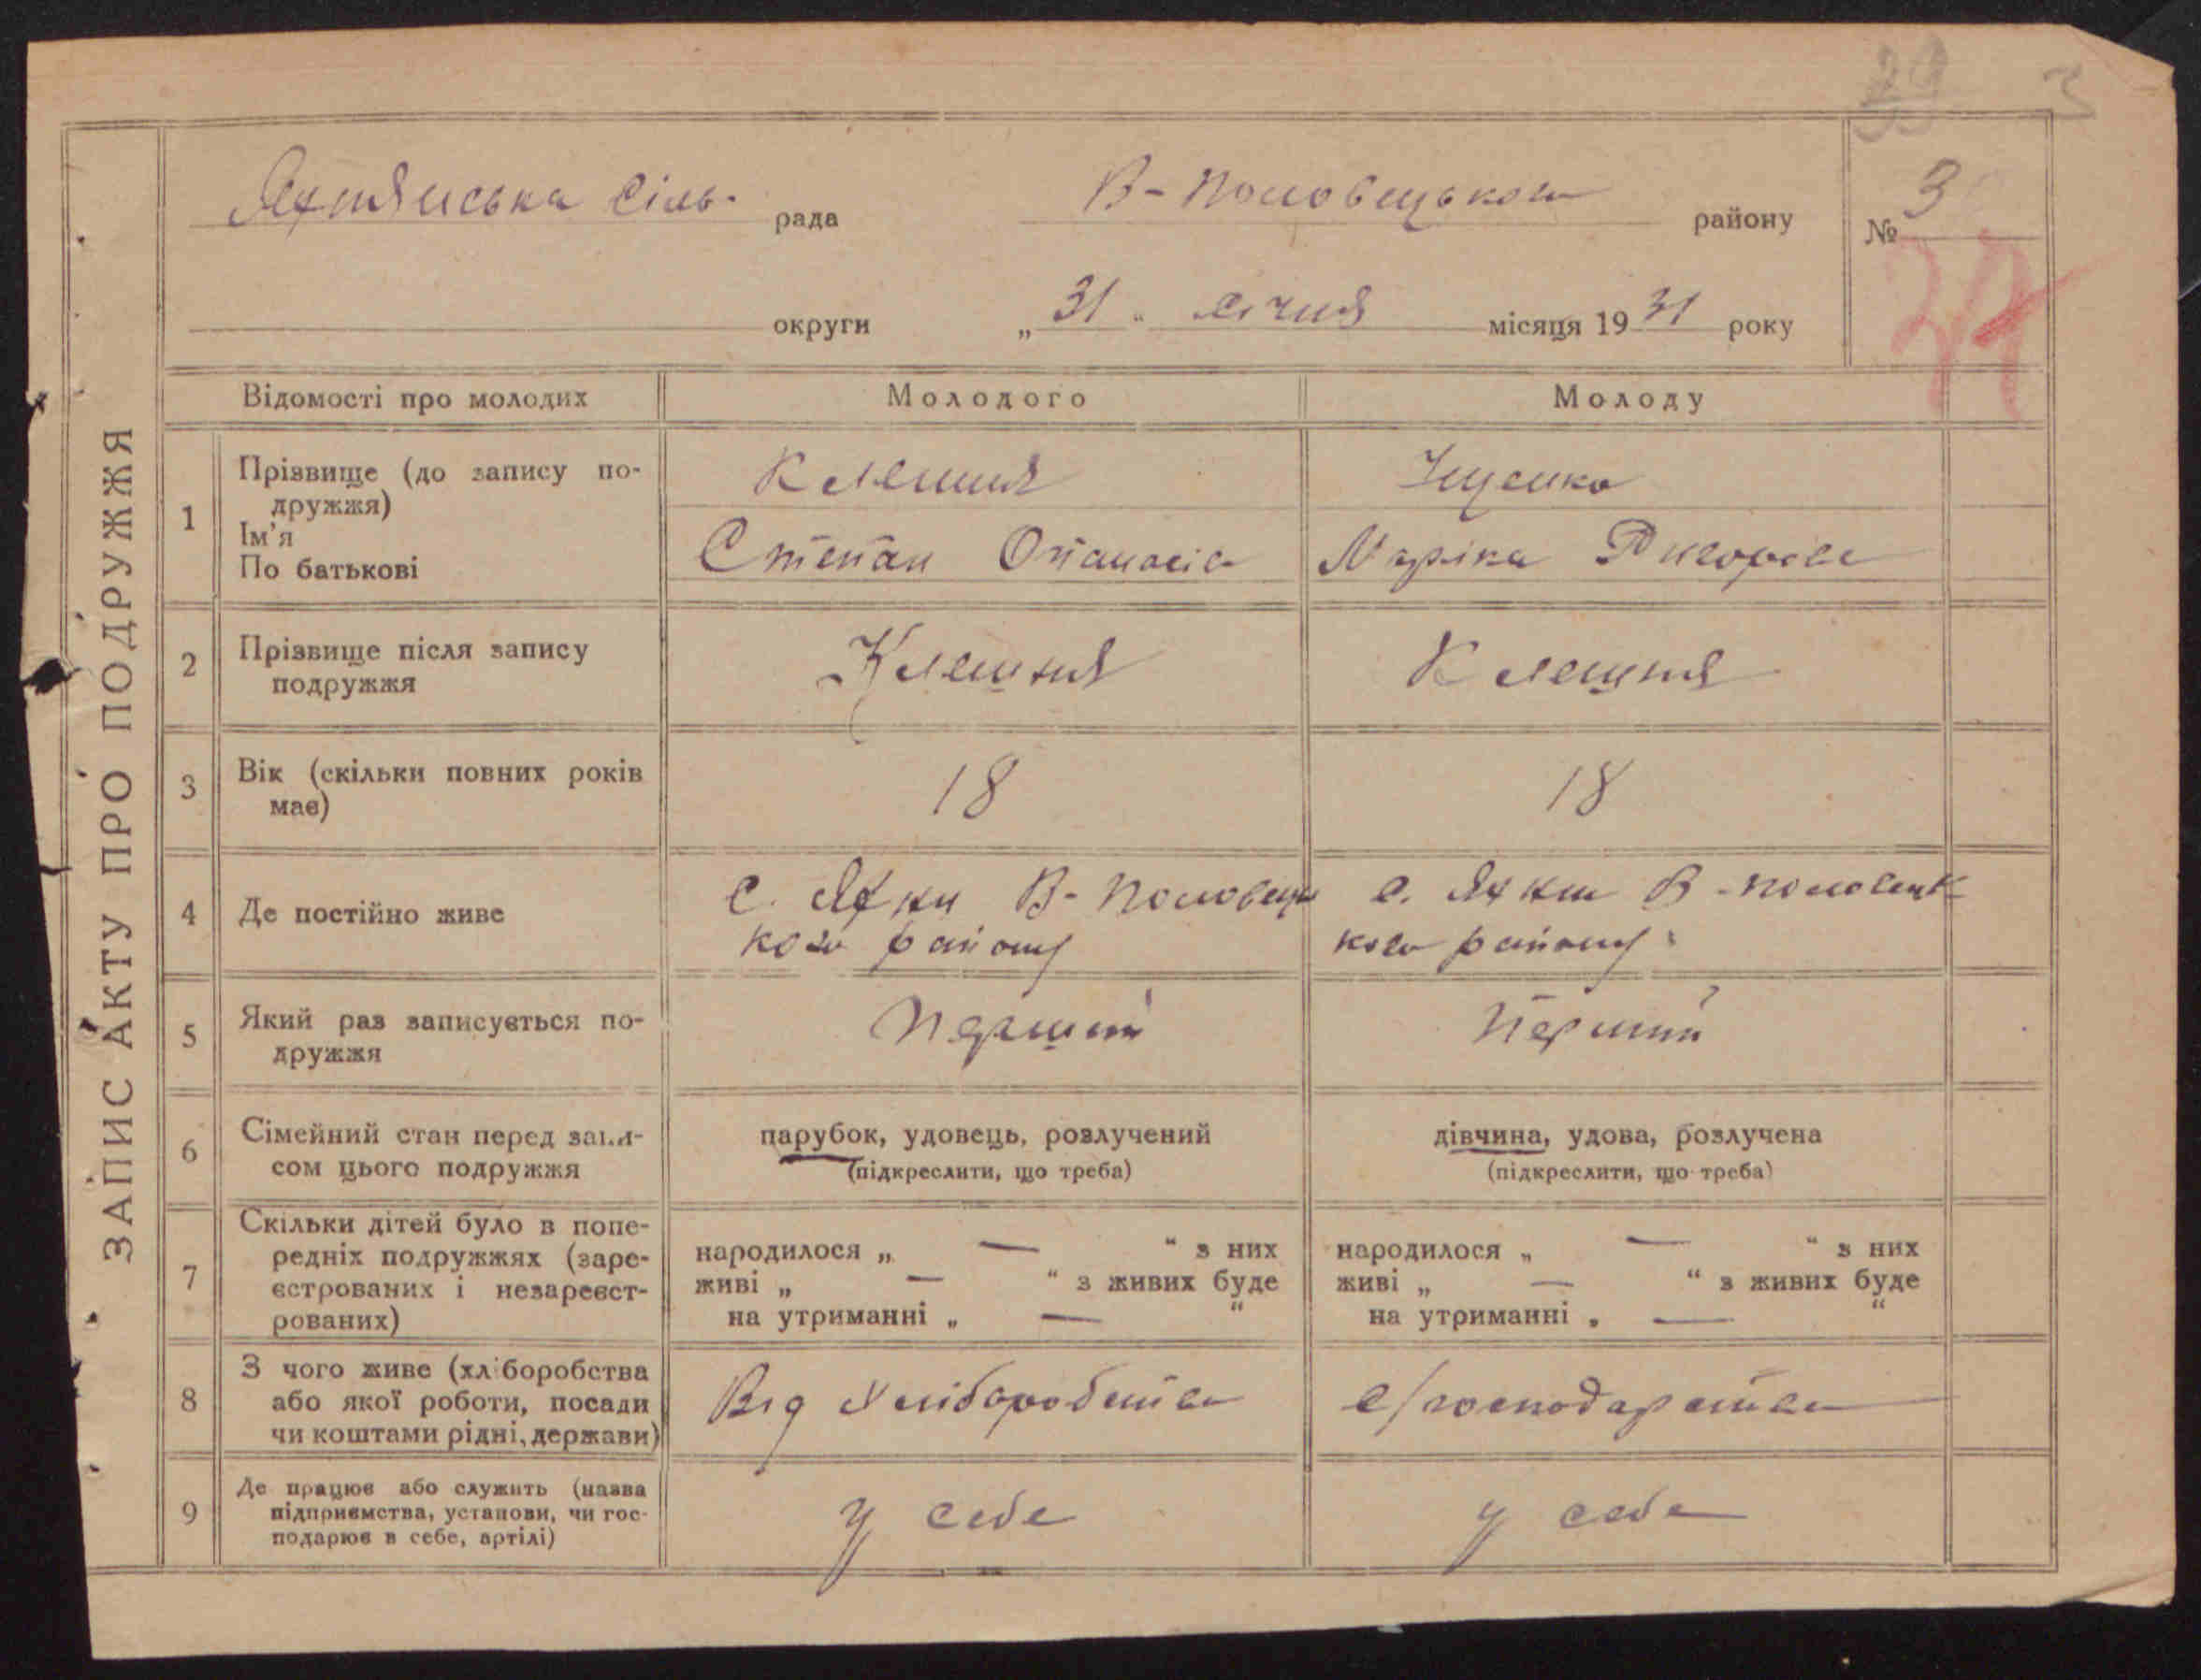 39 3
Яхнянська Сіль. рада В-Половецького району № 3
округи „ 31 “ Січня місяця 19 31 року
27
ЗАПИС АКТУ ПРО ПОДРУЖЖЯ
Відомості про молодих Молодого Молоду
1 Прізвище (до запису по-
дружжя)
Клешня Іщенко
Ім'я
По батькові
Степан Опанасів Маріка Григорова
2 Прізвище після запису
подружжя
Клешня Клешня
3 Вік (скільки повних років
має)
18 18
4 Де постійно живе
с. Яхни В-Половець с. Яхни В-Половецьк
кого району кого району
5 Який раз записується по-
дружжя
Перший Перший
6 Сімейний стан перед запи-
сом цього подружжя
парубок, удовець, розлучений дівчина, удова, розлучена
(підкреслити, що треба) (підкреслити, що треба)
7 Скільки дітей було в попе-
редніх подружжях (заре-
єстрованих і незареєст-
рованих)
народилося „ — “ з них народилося „ — “ з них
живі „ — “ з живих буде живі „ — “ з живих буде
на утриманні „ — “ на утриманні „ — “
8 З чого живе (хліборобства
або якої роботи, посади
чи коштами рідні, держави)
Від Хліборобства с/господарства
9 Де працює або служить (назва
підприємства, установи, чи гос-
подарює в себе, артілі)
у себе у себе